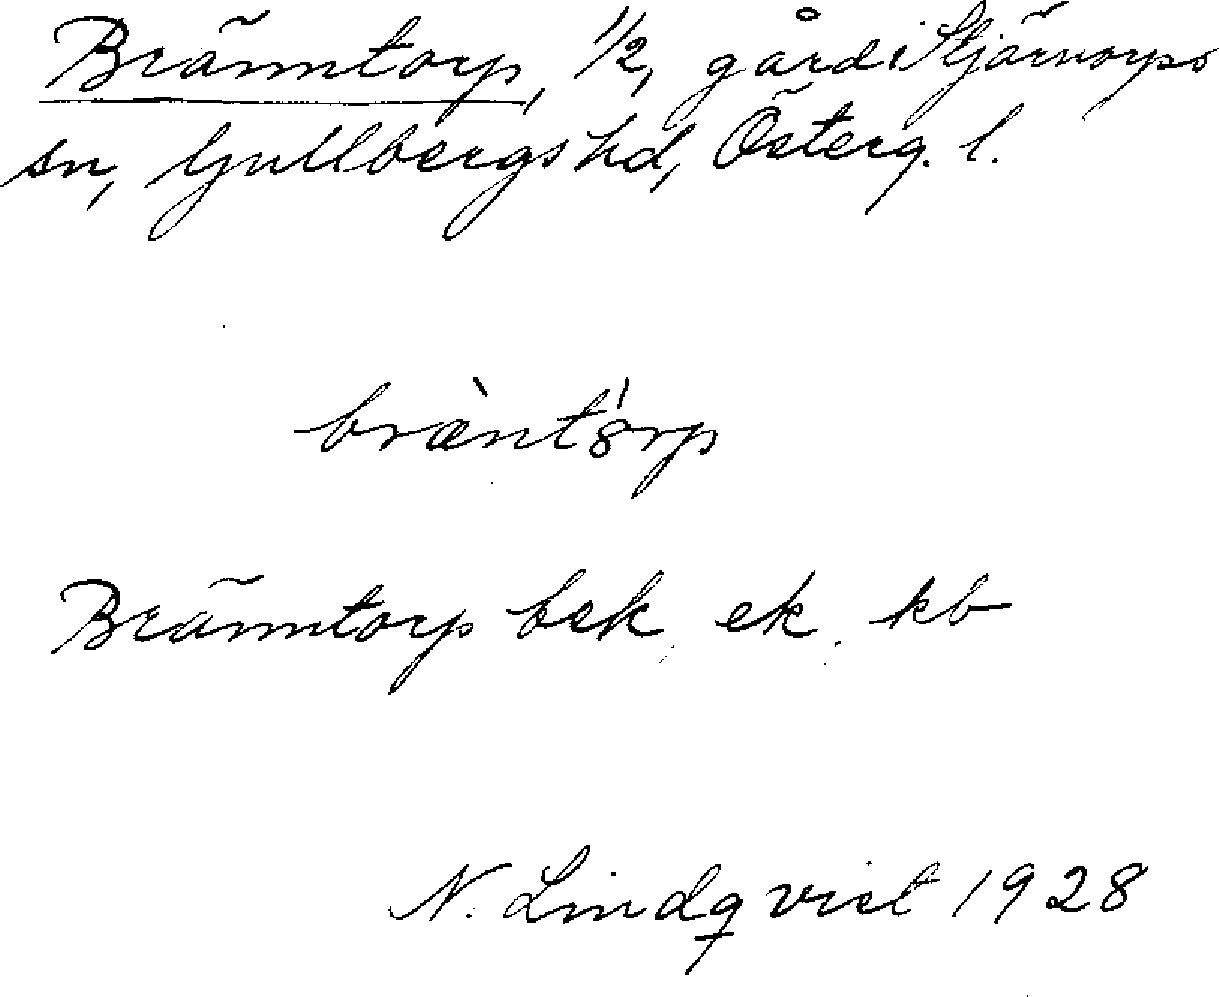 Bränntorp, 1/2, gård i Stjärnorps
sn, Gullbergs hd, Österg. l.
brænt8rp
Bränntorp bek. ek. kb
N. Lindqvist 1928